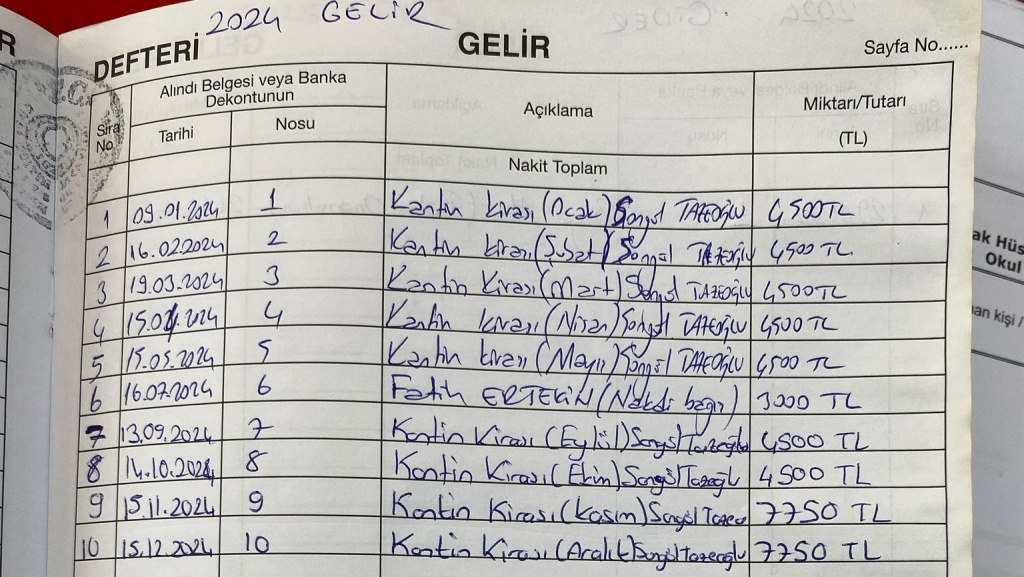 2024 GELİR
DEFTERİ GELİR Sayfa No......
Sıra No. Alındı Belgesi veya Banka Dekontunun Açıklama Miktarı/Tutarı (TL)
Tarihi Nosu
Nakit Toplam
1 09.01.2024 1 Kantin kirası (Ocak) Songül TAZEOĞLU 4500TL
2 16.02.2024 2 Kantin kirası (Şubat) Songül TAZEOĞLU 4500 TL
3 19.03.2024 3 Kantin Kirası (Mart) Songül TAZEOĞLU 4500TL
4 15.04.2024 4 Kantin kirası (Nisan) Songül TAZEOĞLU 4500 TL
5 15.05.2024 5 Kantin kirası (Mayıs) Songül TAZEOĞLU 4500 TL
6 16.07.2024 6 Fatih ERTEKİN (Nakdi bağış) 3000 TL
7 13.09.2024 7 Kantin Kirası (Eylül) Songül Tazeoğlu 4500 TL
8 14.10.2024 8 Kantin Kirası (Ekim) Songül Tazeoğlu 4500 TL
9 15.11.2024 9 Kantin Kirası (Kasım) Songül Tazeo 7750 TL
10 15.12.2024 10 Kantin Kirası (Aralık) Songül Tazeoğlu 7750 TL
ak Hüs
Okul
an kişi /